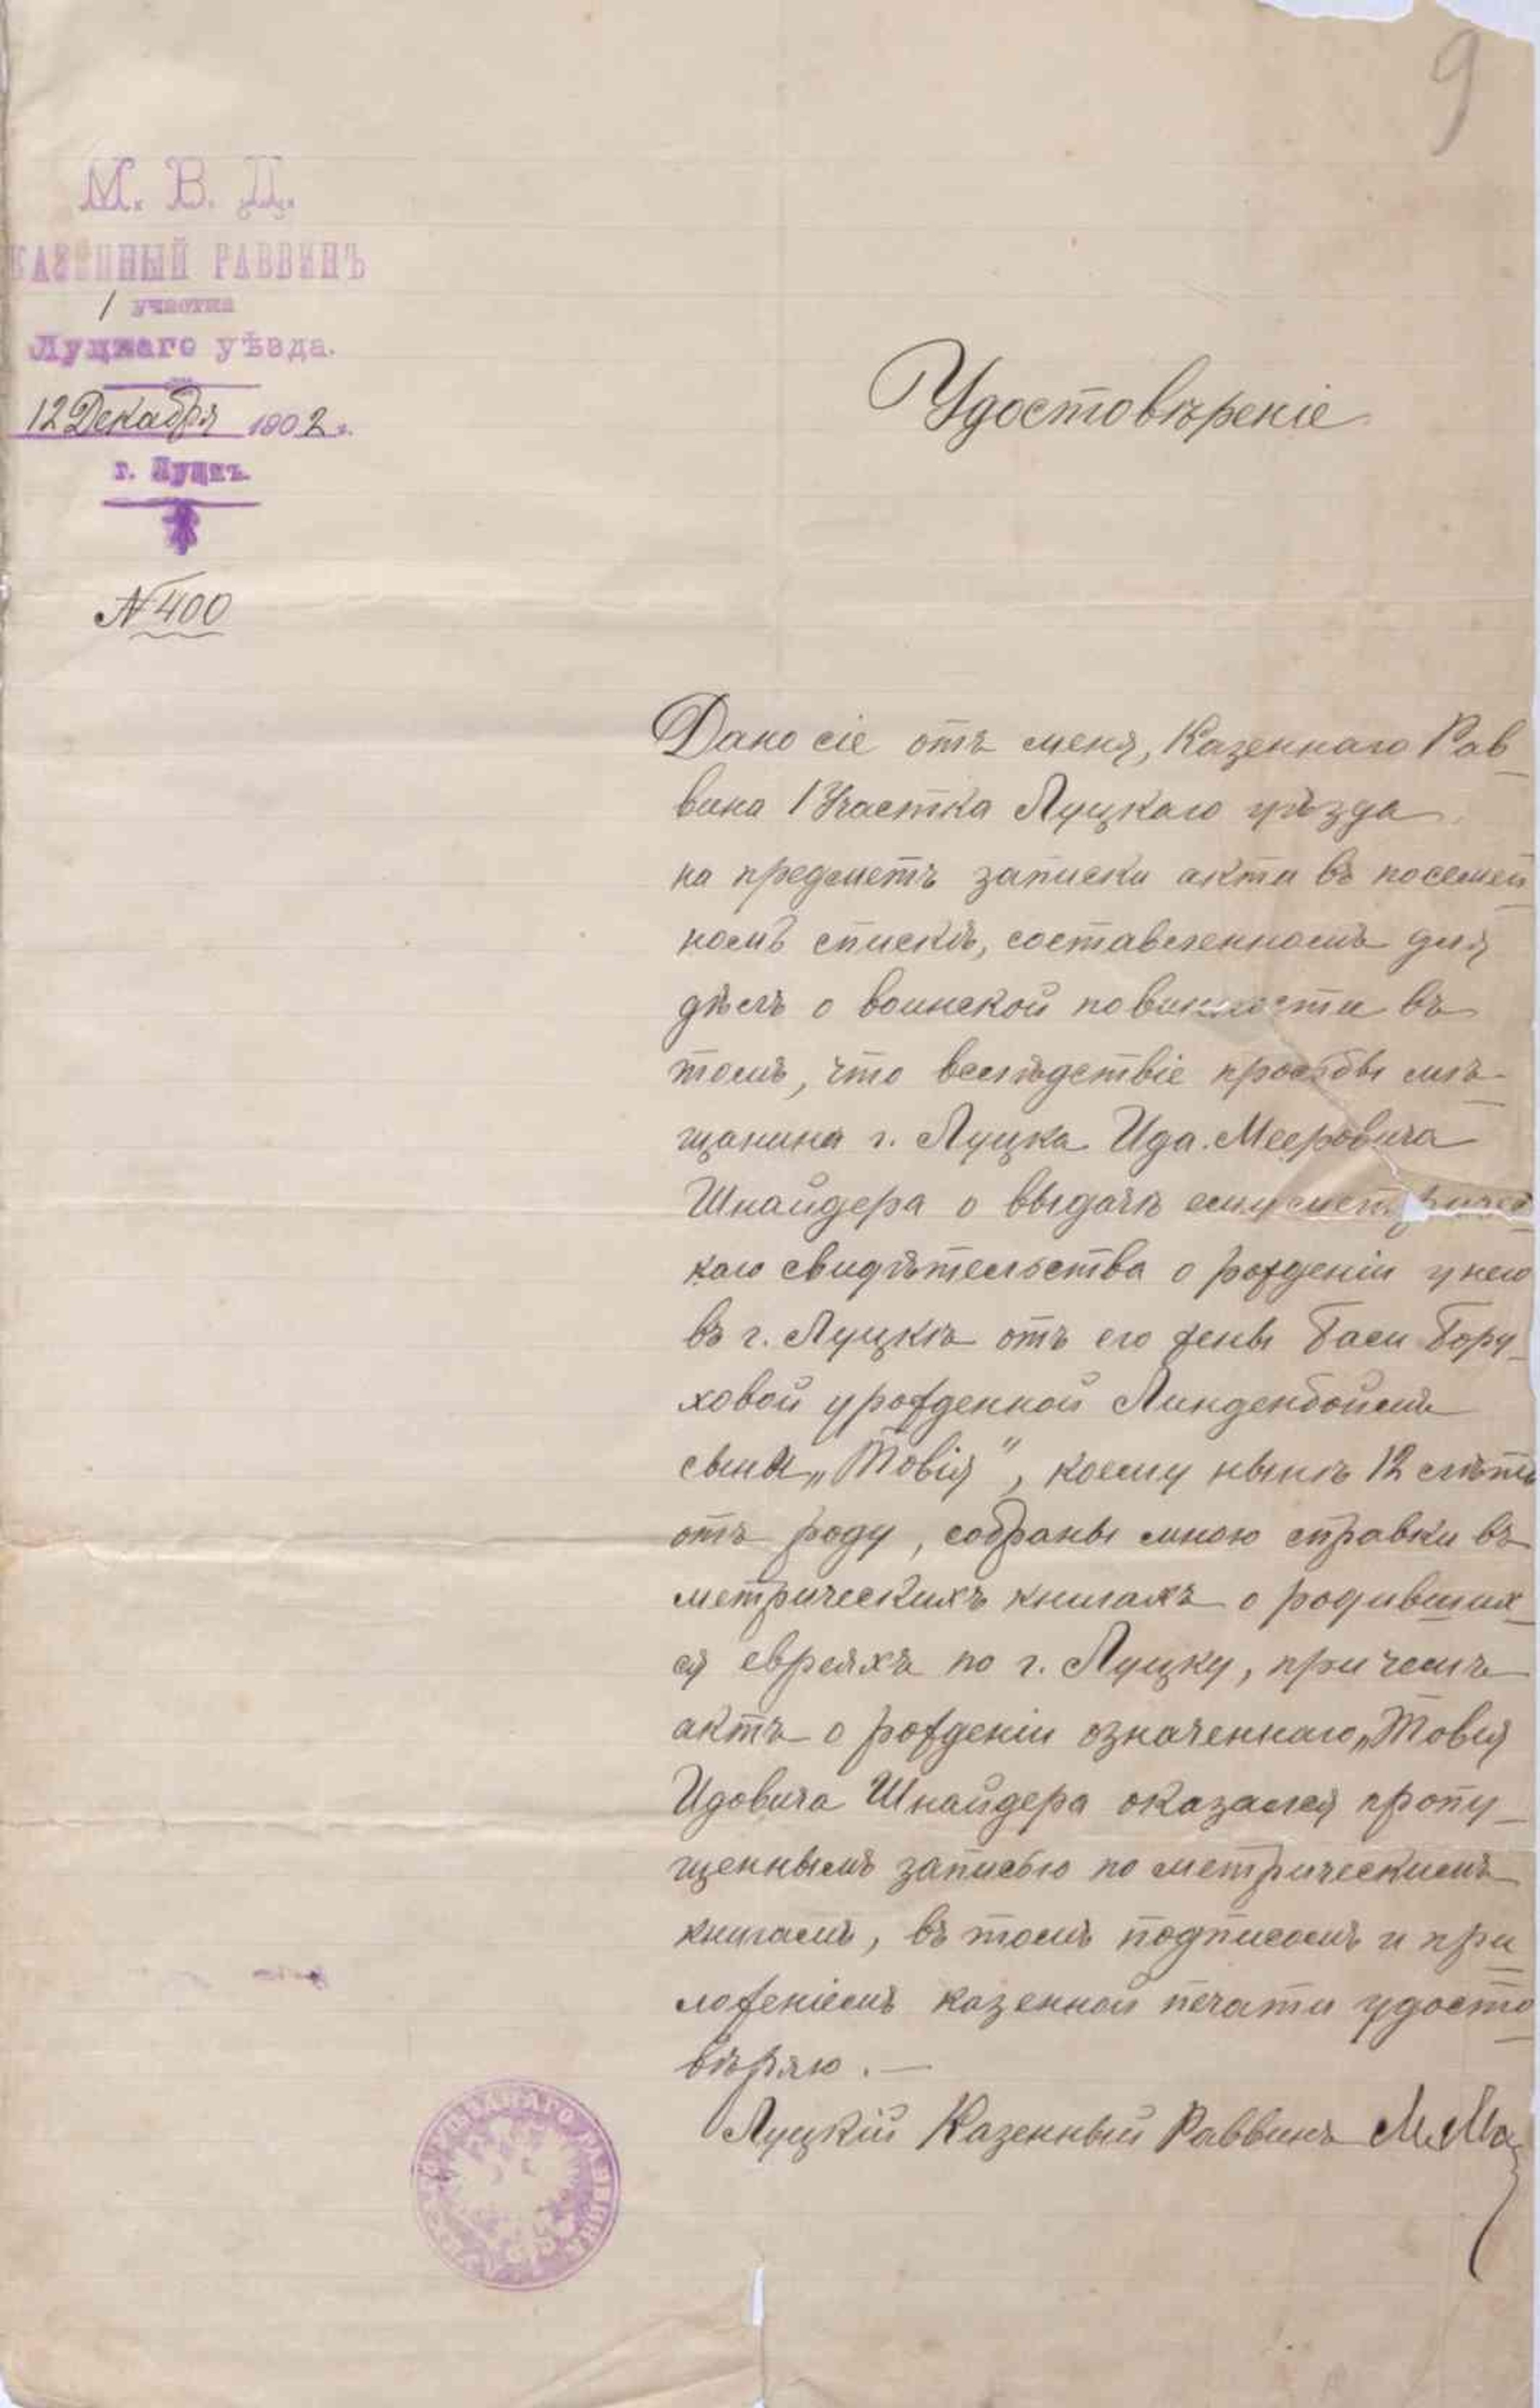 9
М. В. Д.
КАЗЕННЫЙ РАВВИНЪ
1 участка
Луцкаго уѣзда.
12 Декабря 1902 г.
г. Луцкъ.
N 400
Удостовѣреніе
Дано сіе отъ меня, Казеннаго Рав-
вина 1 Участка Луцкаго уѣзда
на предметъ записки акта въ посемей-
номъ спискѣ, составленномъ для
дѣлъ о воинской повинности въ
томъ, что вслѣдствіе просьбы мѣ-
щанина г. Луцка Ида Мееровича
Шнайдера о выдачѣ ему метричес-
каго свидѣтельства о рожденіи у него
въ г. Луцкѣ отъ его жены Баси Бору-
ховой урожденной Линденбоймъ
сына „Товія", коему нынѣ 12 лѣтъ
отъ роду, собраны мною справки въ
метрическихъ книгахъ о родивших-
ся евреяхъ по г. Луцку, при чемъ
актъ о рожденіи означеннаго „Товія
Идовича Шнайдера оказался пропу-
щеннымъ записью по метрическимъ
книгамъ, въ томъ подписомъ и при-
ложеніемъ казенной печати удосто-
вѣряю. —
Луцкій Казенный Раввинъ
РАВВИНА